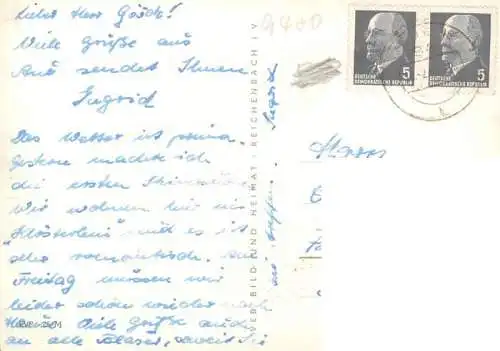 Lieber Herr Gösch!
Viele Grüße aus
Aue sendet Ihnen
Ingrid
Das Wetter ist prima
Gestern machte ich
die ersten
Wir wohnen hier im
"Klösterlein" und es ist
sehr romantisch. Am
Freitag müssen wir
leider schon wieder nach
Viele Grüße auch
an alle Bläser, soweit Sie
treffen. Ingrid
VEB BILD UND HEIMAT · REICHENBACH I V
Herrn
5
DEUTSCHE
DEMOKRATISCHE REPUBLIK
5
DEUTSCHE
DEMOKRATISCHE REPUBLIK